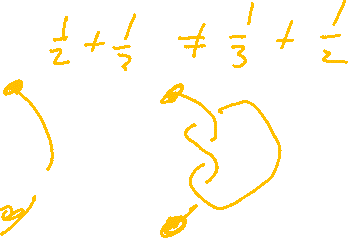 1/2 + 1/3 ≠ 1/3 + 1/2